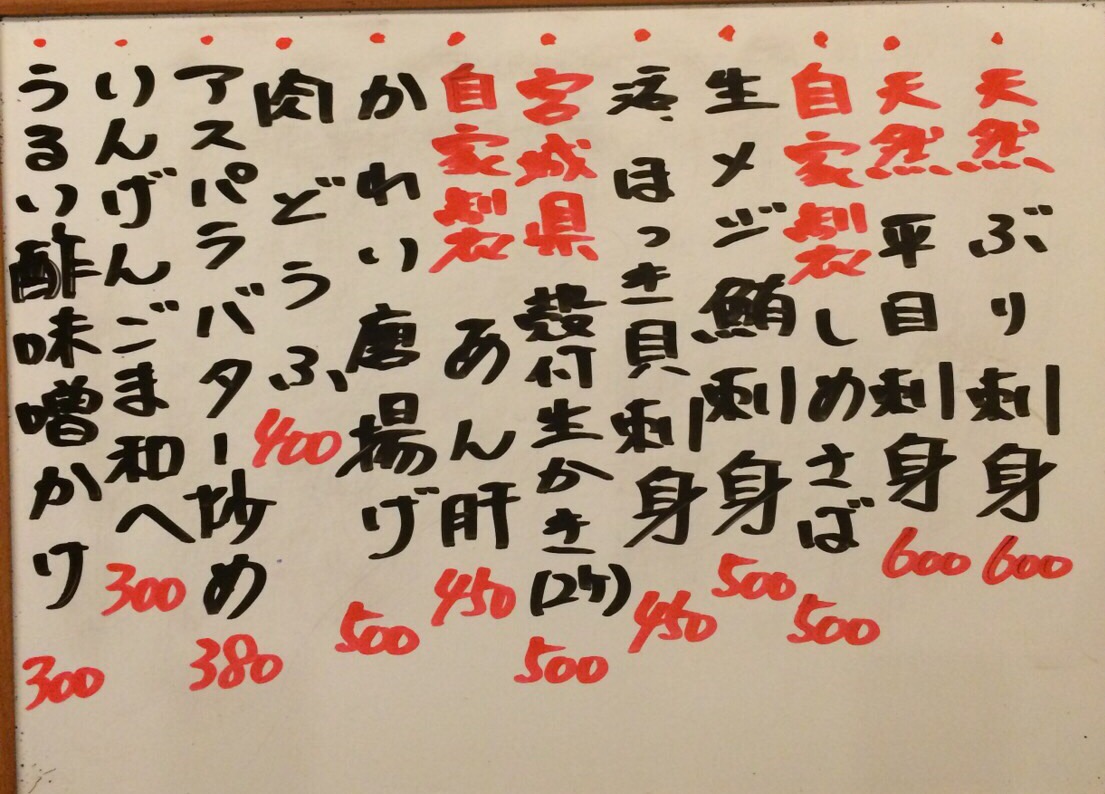 天然 ぶり刺身 600
天然 平目刺身 600
自家製 しめさば 500
生メジ鮪刺身 500
活ほっき貝刺身 450
宮城県 殻付生かき(2ケ) 500
自家製 あん肝 450
かわり唐揚げ 500
肉どうふ 400
アスパラバター炒め 380
いんげんごま和へ 300
うるい酢味噌かけ 300